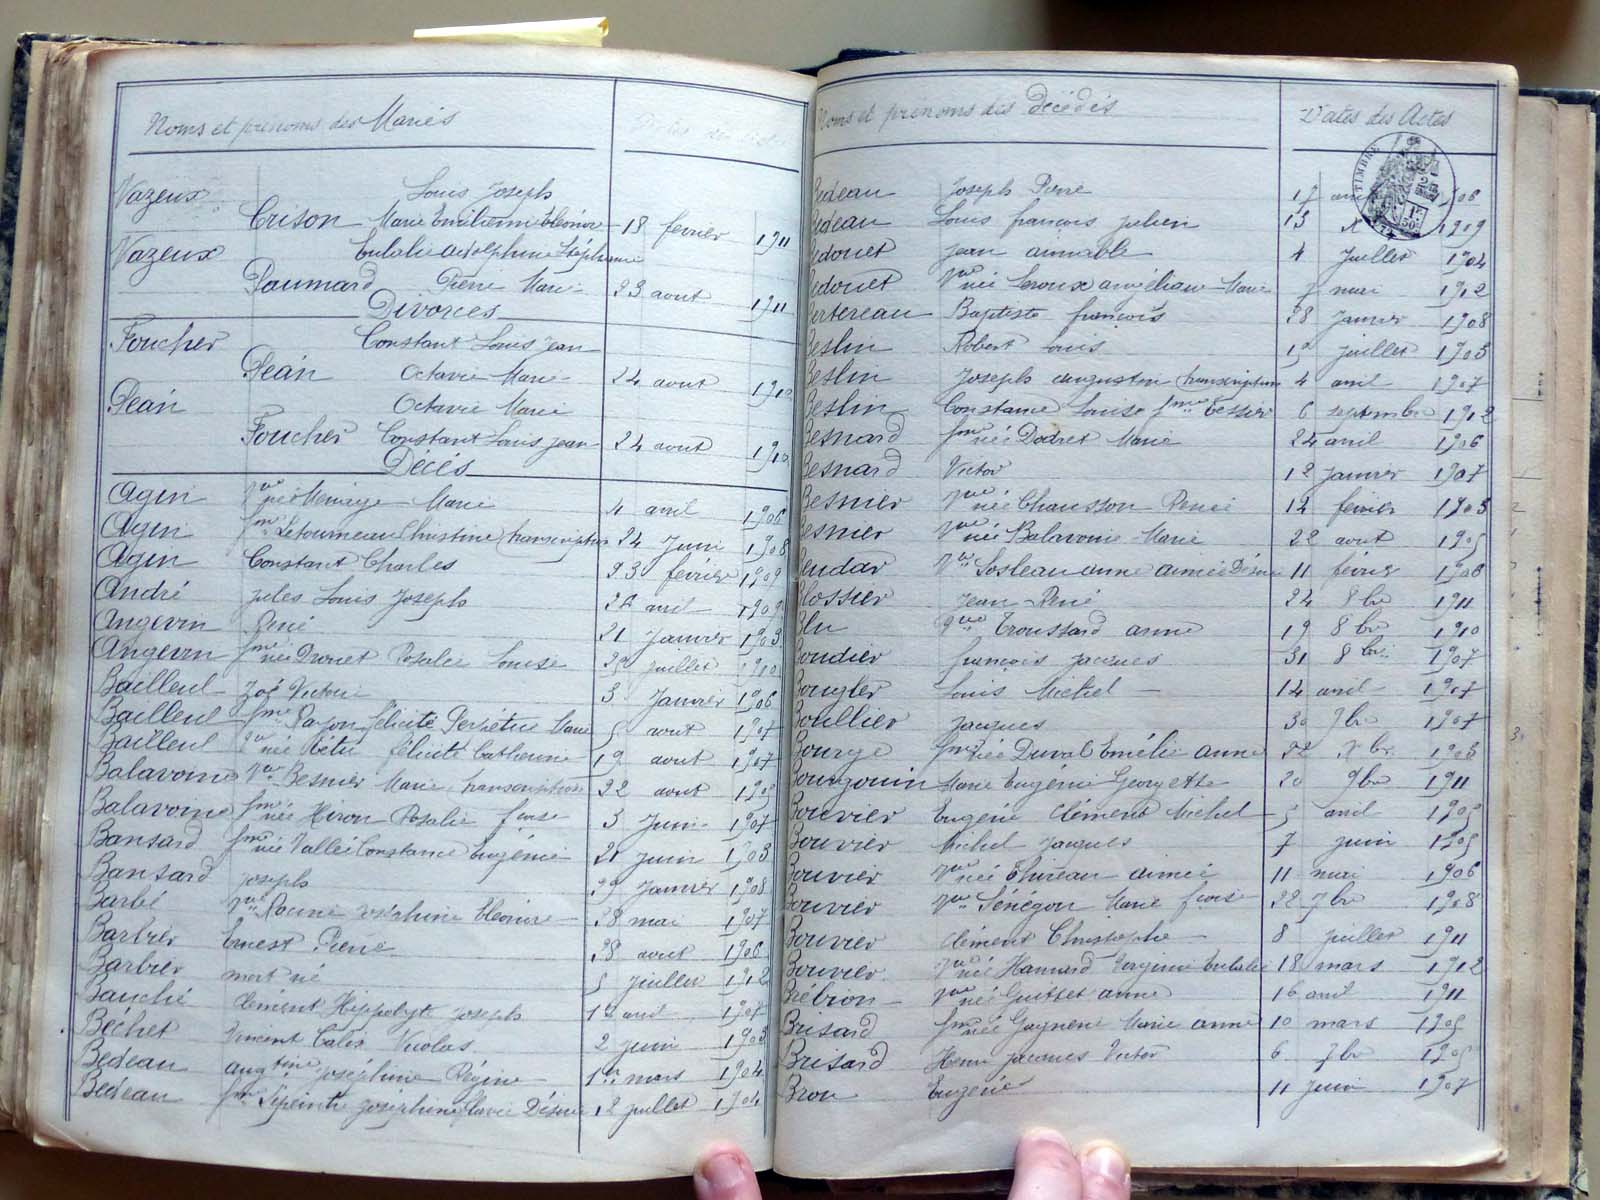 Noms et prénoms des Mariés
Vazeux Louis Joseph
Crison Marie Emilienne Eléonor 18 février 1911
Vazeux Eulalie Adolphine Stéphanie
Paumard Pierre Marie 23 aout 1911
Divorces
Foucher Constant Louis Jean
Péan Octavie Marie 24 aout 1910
Péan Octavie Marie
Foucher Constant Louis Jean 24 aout 1910
Décès
Agin Vve née Ménage Marie 4 avril 1906
Agin fme Letourneau Christine transcription 24 Juin 1908
Agin Constant Charles 23 février 1909
André jules Louis Joseph 26 avril 1909
Angevin René 21 Janvier 1903
Angevin fme née Drouet Rosalie Louise 29 juillet 1910
Bailleul Zoé Victoire 3 Janvier 1906
Bailleul fme Félicité Perpétue Marie 5 aout 1907
Bailleul née Bétu félicité Catherine 19 aout 1907
Balavoine Vve Besnier Marie transcription 22 aout 1905
Balavoine fme née Hiron Rosalie 3 Juin 1907
Bansard fme née Vallée Constance Eugénie 21 juin 1903
Bansard joseph 29 Janvier 1908
Barbé Vve Racine joséphine Eléonore 28 mai 1907
Barbier Ernest Pierre 28 aout 1906
Barbier mort né 5 juillet 1912
Bauché clément Hippolyte joseph 12 avril 1907
Béchet Vincent Nicolas 2 juin 1903
Bedeau augtine joséphine Régine 1er mars 1904
Bedeau fme joséphine flavie Désirée 12 juillet 1904
Noms et prénoms des Décédés Dates des Actes
TIMBRE
Bedeau Joseph Pierre 17 1906
Bedeau Louis françois julien 13 X 1909
Bedouet jean aimable 4 Juillet 1904
Bedouet Vve née Leroux Marie 7 mai 1912
Bertereau Baptiste françois 28 Janvier 1908
Beslin Robert Louis juillet 1903
Beslin Joseph augustin transcription 4 avril 1907
Beslin Constance Louise fme Tessier 6 septembre 1912
Besnard fme née Dodret Marie 24 avril 1906
Besnard Victor 12 janvier 1907
Besnier Vve née Chausson Renée 12 février 1903
Besnier Vve née Balavoine Marie 22 aout 1905
anne aimée Désirée 11 février 1906
Blossier jean René 24 8bre 1911
Blu Vve Troussard anne 19 8bre 1910
Boudier françois jacques 31 8bre 1907
Bougler Louis Michel 14 avril 1907
Boullier jacques 30 7bre 1907
Bourge fme née Duval Emélie anne 22 Xbre 1903
Bourgouin Marie Eugénie Georgette 20 9bre 1911
Bouvier Eugène Clément Michel 5 avril 1905
Bouvier Michel Jacques 7 juin 1905
Bouvier Vve née Thireau aimée 11 mai 1906
Bouvier Vve Sénégon Marie 22 7bre 1908
Bouvier clément Christophe 8 juillet 1911
Bouvier Vve née Hamard Virginie Eulalie 18 mars 1912
Brébion Vve née Guittet anne 16 avril 1911
Brisard fme née Marie anne 10 mars 1905
Brisard Henri jacques Victor 6 7bre 1905
Brou Eugène 11 Juin 1907